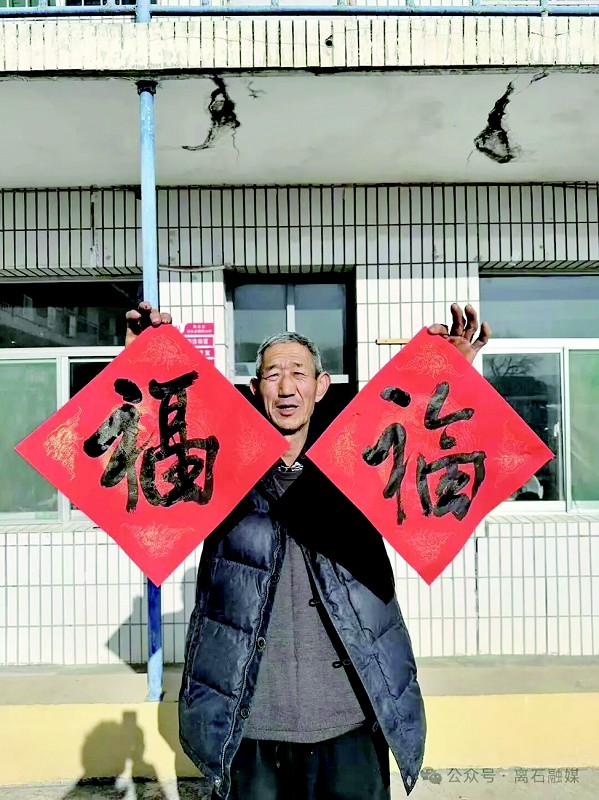 福
福
公众号 · 离石融媒